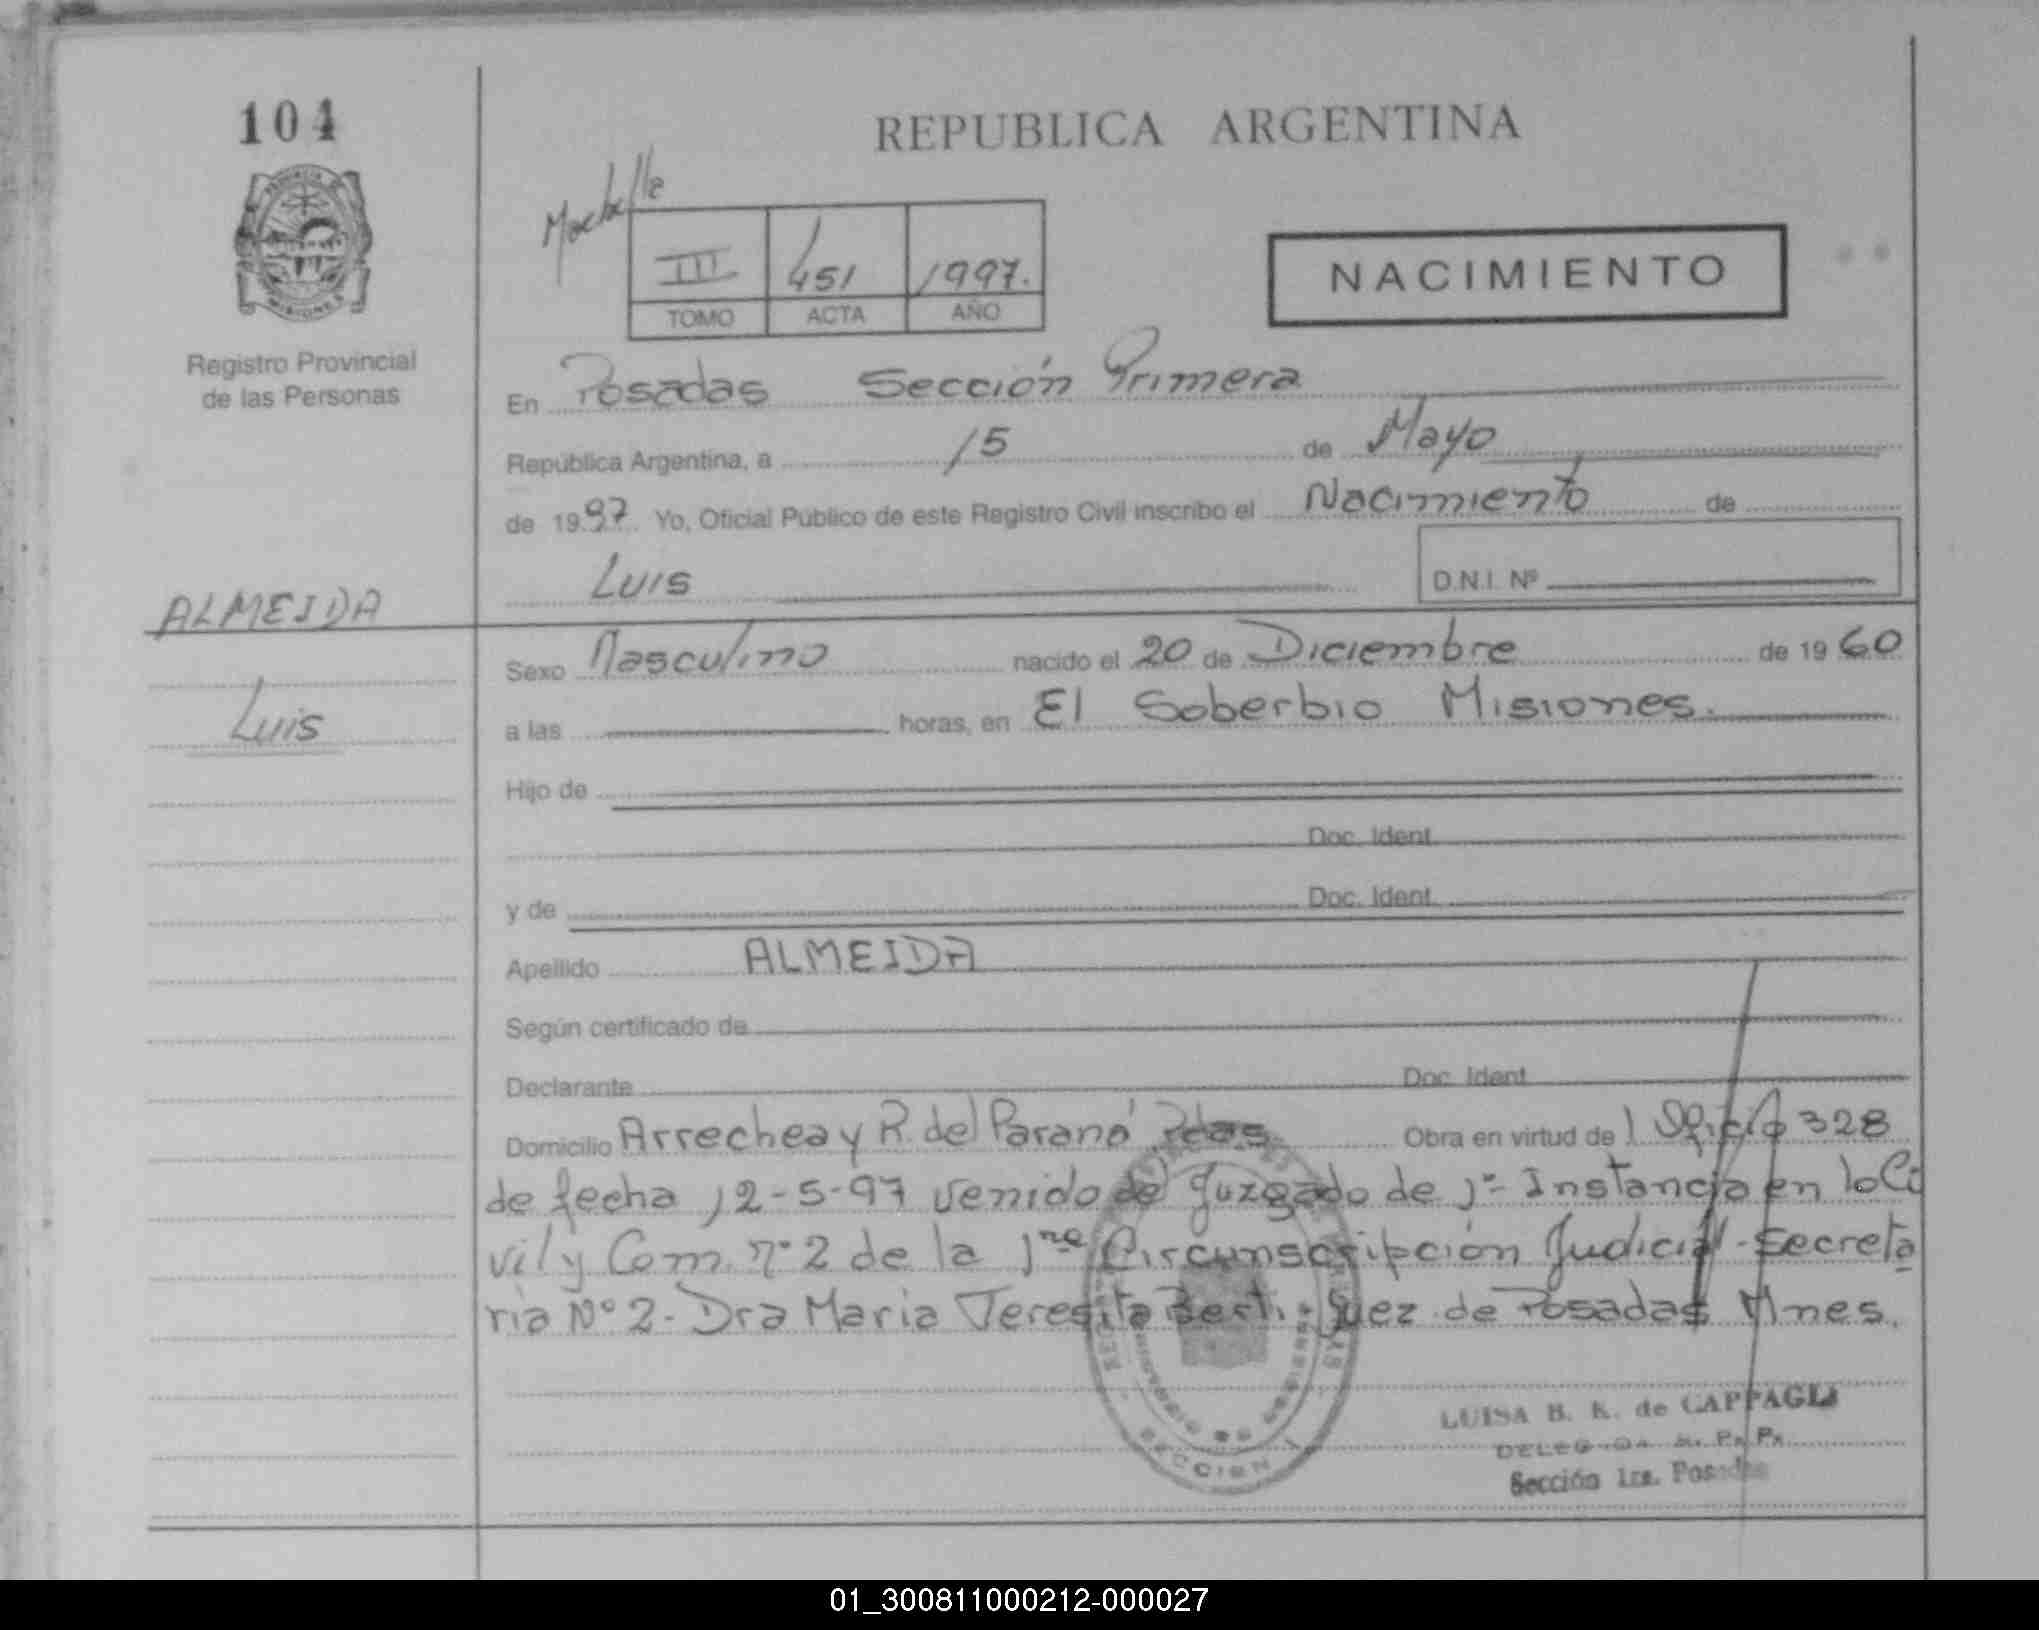 104
REPUBLICA ARGENTINA
III 451 1997.
TOMO ACTA AÑO
NACIMIENTO
PROVINCIA DE
MISIONES
Registro Provincial
de las Personas
En Posadas Sección Primera
República Argentina, a 15 de Mayo
de 1997 Yo, Oficial Público de este Registro Civil inscribo el Nacimiento de
Luis D.N.I. Nº
ALMEIDA
Luis
Sexo Masculino nacido el 20 de Diciembre de 1960
a las horas, en El Soberbio Misiones.
Hijo de
Doc. Ident.
y de Doc. Ident.
Apellido ALMEIDA
Según certificado de
Declarante Doc. Ident.
Domicilio Arrechea y R. del Paraná Pdas Obra en virtud de l Oficio 328
de fecha 12-5-97 venido del Juzgado de 1º Instancia en lo Ci
vil y Com. nº 2 de la 1ra Circunscripción Judicial - Secreta
ria Nº 2 - Dra Maria Teresita Juez de Posadas Mnes.
SECCION 1
LUISA B. K. de CAPPAGLI
Sección 1ra. Posadas
01_300811000212-000027